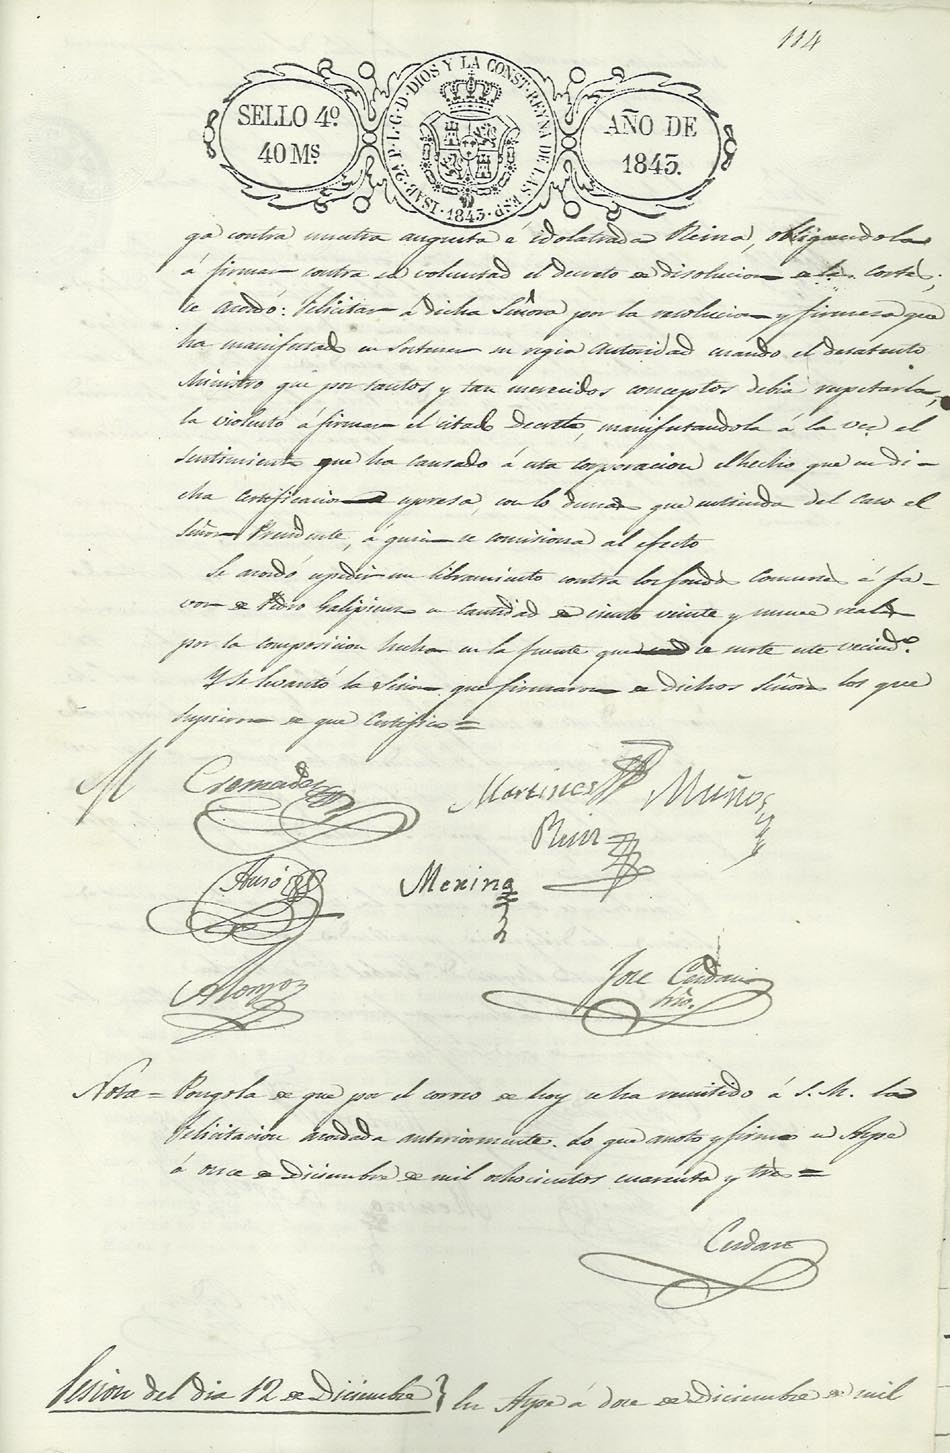 114
SELLO 4º
40 Ms
ISAB. 2ª P. L. G. D. DIOS Y LA CONST. REYNA DE LAS ESP. 1843.
AÑO DE
1843.
ga contra nuestra augusta é idolatrada Reina, obligandola
á firmar contra su voluntad el decreto de disolucion de las Cortes,
se acordó: Felicitar á dicha Señora por la resolucion y firmeza que
ha manifestado en sostener su regia autoridad cuando el desatento
Ministro que por tantos y tan merecidos conceptos debia respetarla,
la violentó á firmar el citado Decreto, manifestandola á la vez el
sentimiento que ha causado á esta corporacion el hecho que en di-
cha certificacion se espresa, con lo demas que entienda del caso el
Señor Presidente, á quien se comisiona al efecto
Se acordó espedir un libramiento contra los fondos comunes á fa-
vor de Pedro Galipienso en cantidad de ciento veinte y nueve reales
por la composicion hecha en la fuente que se surte este vecindº.
Y se levantó la Sesion que firmaron de dichos Señores los que
supieron de que Certifico =
Cremades
Martinez
Muñoz
Ruiz
Asnó
Merino
Alonzo
Jose Cerdan
Srio.
Nota = Pongola de que por el correo de hoy se ha remitido á S. M. la
felicitacion acordada anteriormente. Lo que anoto y firmo en Aspe
á once de Diciembre de mil ochocientos cuarenta y tres =
Cerdan
Sesion del dia 12 de Diciembre } En Aspe á doce de Diciembre de mil